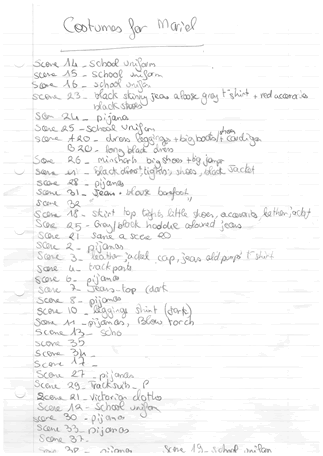 Costumes for Mariel
Scene 14 - school uniform
scene 15 - school uniform
scene 16 - school uniform
scene 23 - black skinny jeans a loose gray t'shirt + red accesories
black shoes
24 - pijama
Scene 25 - school uniform
scene A20 - dress leggings + big boots +
B20 - long black dress
Scene 26 - minishorts big shoes +
black dress, tights, shoes, black Jacket
scene 28 - pijamas
Scene 31 - Jeans + blouse barefoot
scene 32
Scene 18 - skirt top tights, little shoes, accesories
Scene 25 - Gray/black hoodie coloured jeans
Scene 21 same a scene 20
Scene 2 - pijamas
Scene 3 - leather jacket, cap, jeans old t'shirt
Scene 4 - track pants
Scene 6 - pijamas
Scene 7 - Jeans - top (dark
Scene 8 - pijamas
Scene 10 - leggings shirt (dark)
Scene 11 - pijamas, Blow torch
Scene 13 - scho
Scene 35
Scene 34 -
Scene 17 -
Scene 27 - pijamas
Scene 29 - Tracksuit
Scene 21 - victorian clothes
Scene 12 - School uniform
scene 30 - pijamas
Scene 33 - pijamas
Scene 37.
pijamas Scene 19 - school uniform